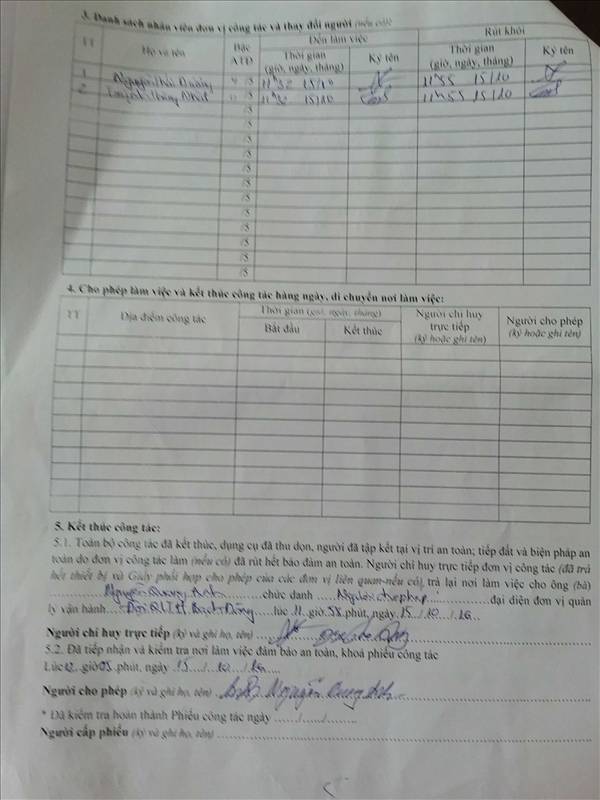 3. Danh sách nhân viên đơn vị công tác và thay đổi người (nếu có):
TT Họ và tên Bậc ATĐ Đến làm việc Rút khỏi
Thời gian (giờ, ngày, tháng) Ký tên Thời gian (giờ, ngày, tháng) Ký tên
1 /5 15/10 11h55 15/10
2 /5 15/10 11h55 15/10
/5
/5
/5
/5
/5
/5
/5
/5
/5
/5
/5
/5
4. Cho phép làm việc và kết thúc công tác hàng ngày, di chuyển nơi làm việc:
TT Địa điểm công tác Thời gian (giờ, ngày, tháng) Người chỉ huy trực tiếp (ký hoặc ghi tên) Người cho phép (ký hoặc ghi tên)
Bắt đầu Kết thúc
5. Kết thúc công tác:
5.1. Toàn bộ công tác đã kết thúc, dụng cụ đã thu dọn, người đã tập kết tại vị trí an toàn; tiếp đất và biện pháp an
toàn do đơn vị công tác làm (nếu có) đã rút hết bảo đảm an toàn. Người chỉ huy trực tiếp đơn vị công tác (đã trả
hết thiết bị và Giấy phối hợp cho phép của các đơn vị liên quan-nếu có), trả lại nơi làm việc cho ông (bà)
Nguyễn Quang Anh chức danh Người cho phép đại diện đơn vị quản
lý vận hành Bạch Đằng lúc 11 giờ 58 phút, ngày 15/10/16
Người chỉ huy trực tiếp (ký và ghi họ, tên)
5.2. Đã tiếp nhận và kiểm tra nơi làm việc đảm bảo an toàn, khoá phiếu công tác
Lúc 12 giờ 05 phút, ngày 15/10/16
Người cho phép (ký và ghi họ, tên) Nguyễn Quang Anh
* Đã kiểm tra hoàn thành Phiếu công tác ngày ....../....../........
Người cấp phiếu (ký và ghi họ, tên)